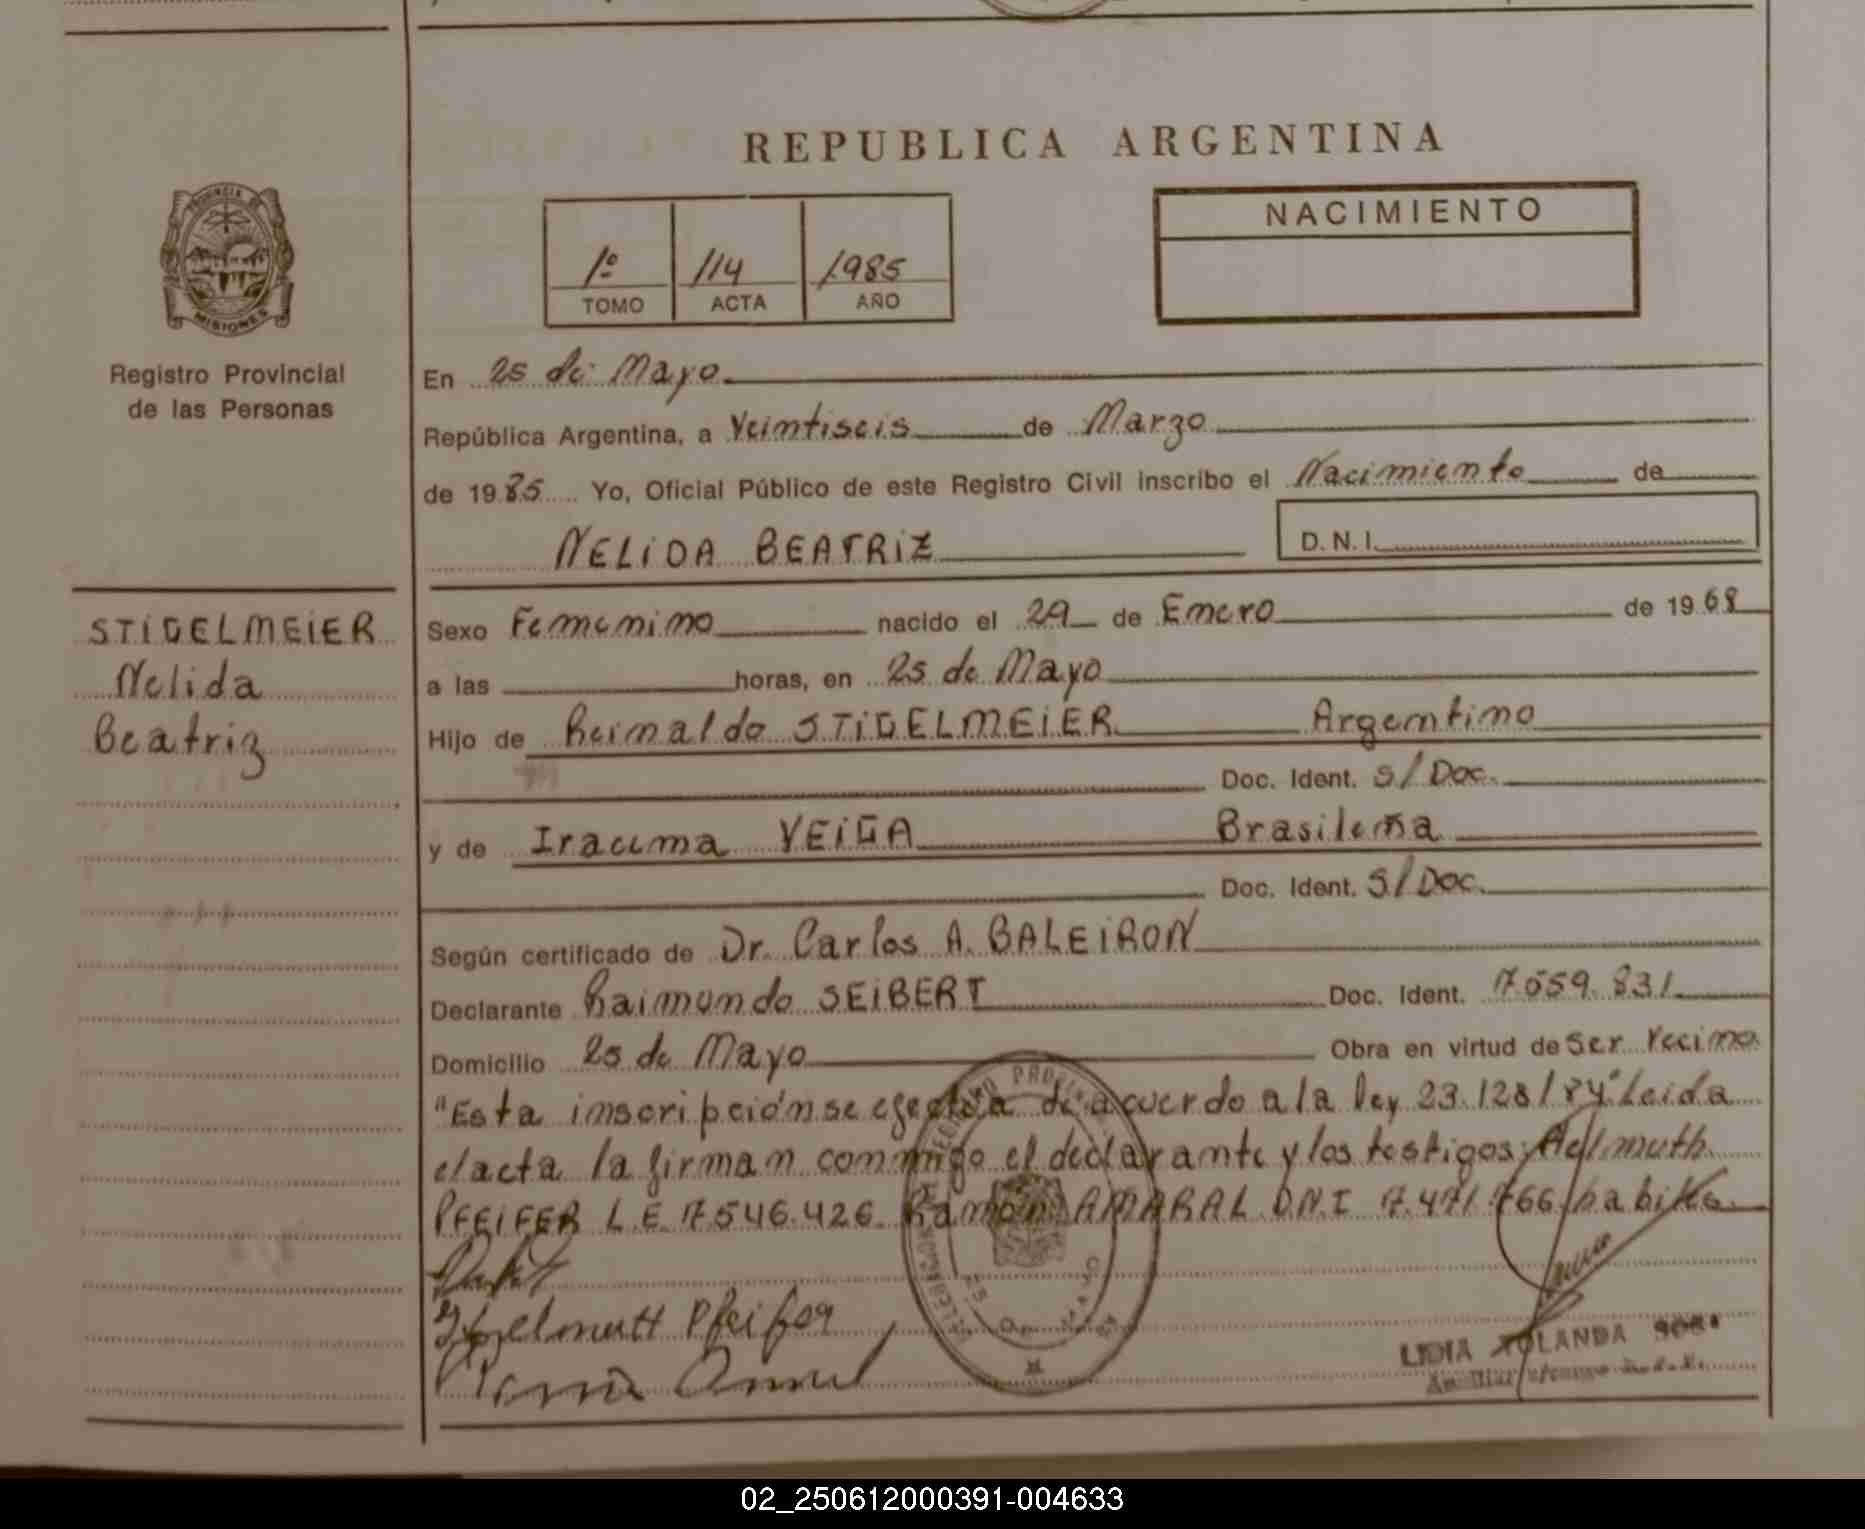 REPUBLICA ARGENTINA
PROVINCIA DE
MISIONES
Registro Provincial
de las Personas
1º 114 1985
TOMO ACTA AÑO
NACIMIENTO
En 25 de Mayo
República Argentina, a Veintiseis de Marzo
de 1985 Yo, Oficial Público de este Registro Civil inscribo el Nacimiento de
NELIDA BEATRIZ D.N.I.
STIGELMEIER
Nelida
Beatriz
Sexo Femenino nacido el 29 de Enero de 1968
a las horas, en 25 de Mayo
Hijo de Reinaldo STIGELMEIER Argentino
Doc. Ident. S/Doc.
y de Iracema VEIGA Brasileña
Doc. Ident. S/Doc.
Según certificado de Dr. Carlos A. BALEIRON
Declarante Raimundo SEIBERT Doc. Ident. 7.559.831
Domicilio 25 de Mayo Obra en virtud de ser Vecino
"Esta inscripción se efectua de acuerdo a la ley 23.128/84" Leida
el acta la firman conmigo el declarante y los testigos: Helmuth
PFEIFER L.E. 7.546.426 Ramón AMARAL D.N.I. 7.471.766 habiles
Helmutt Pfeifer
LIDIA YOLANDA
02_250612000391-004633